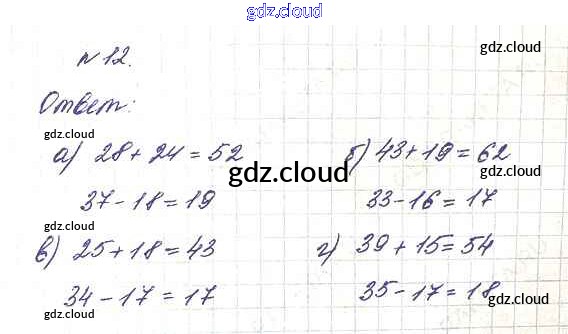 gdz.cloud
№12.
gdz.cloud
Ответ:
gdz.cloud
gdz.cloud
а) 28+24=52
б) 43+19=62
gdz.cloud
37-18=19
33-16=17
gdz.cloud
gdz.cloud
в) 25+18=43
г) 39+15=54
34-17=17
35-17=18
gdz.cloud
gdz.cloud